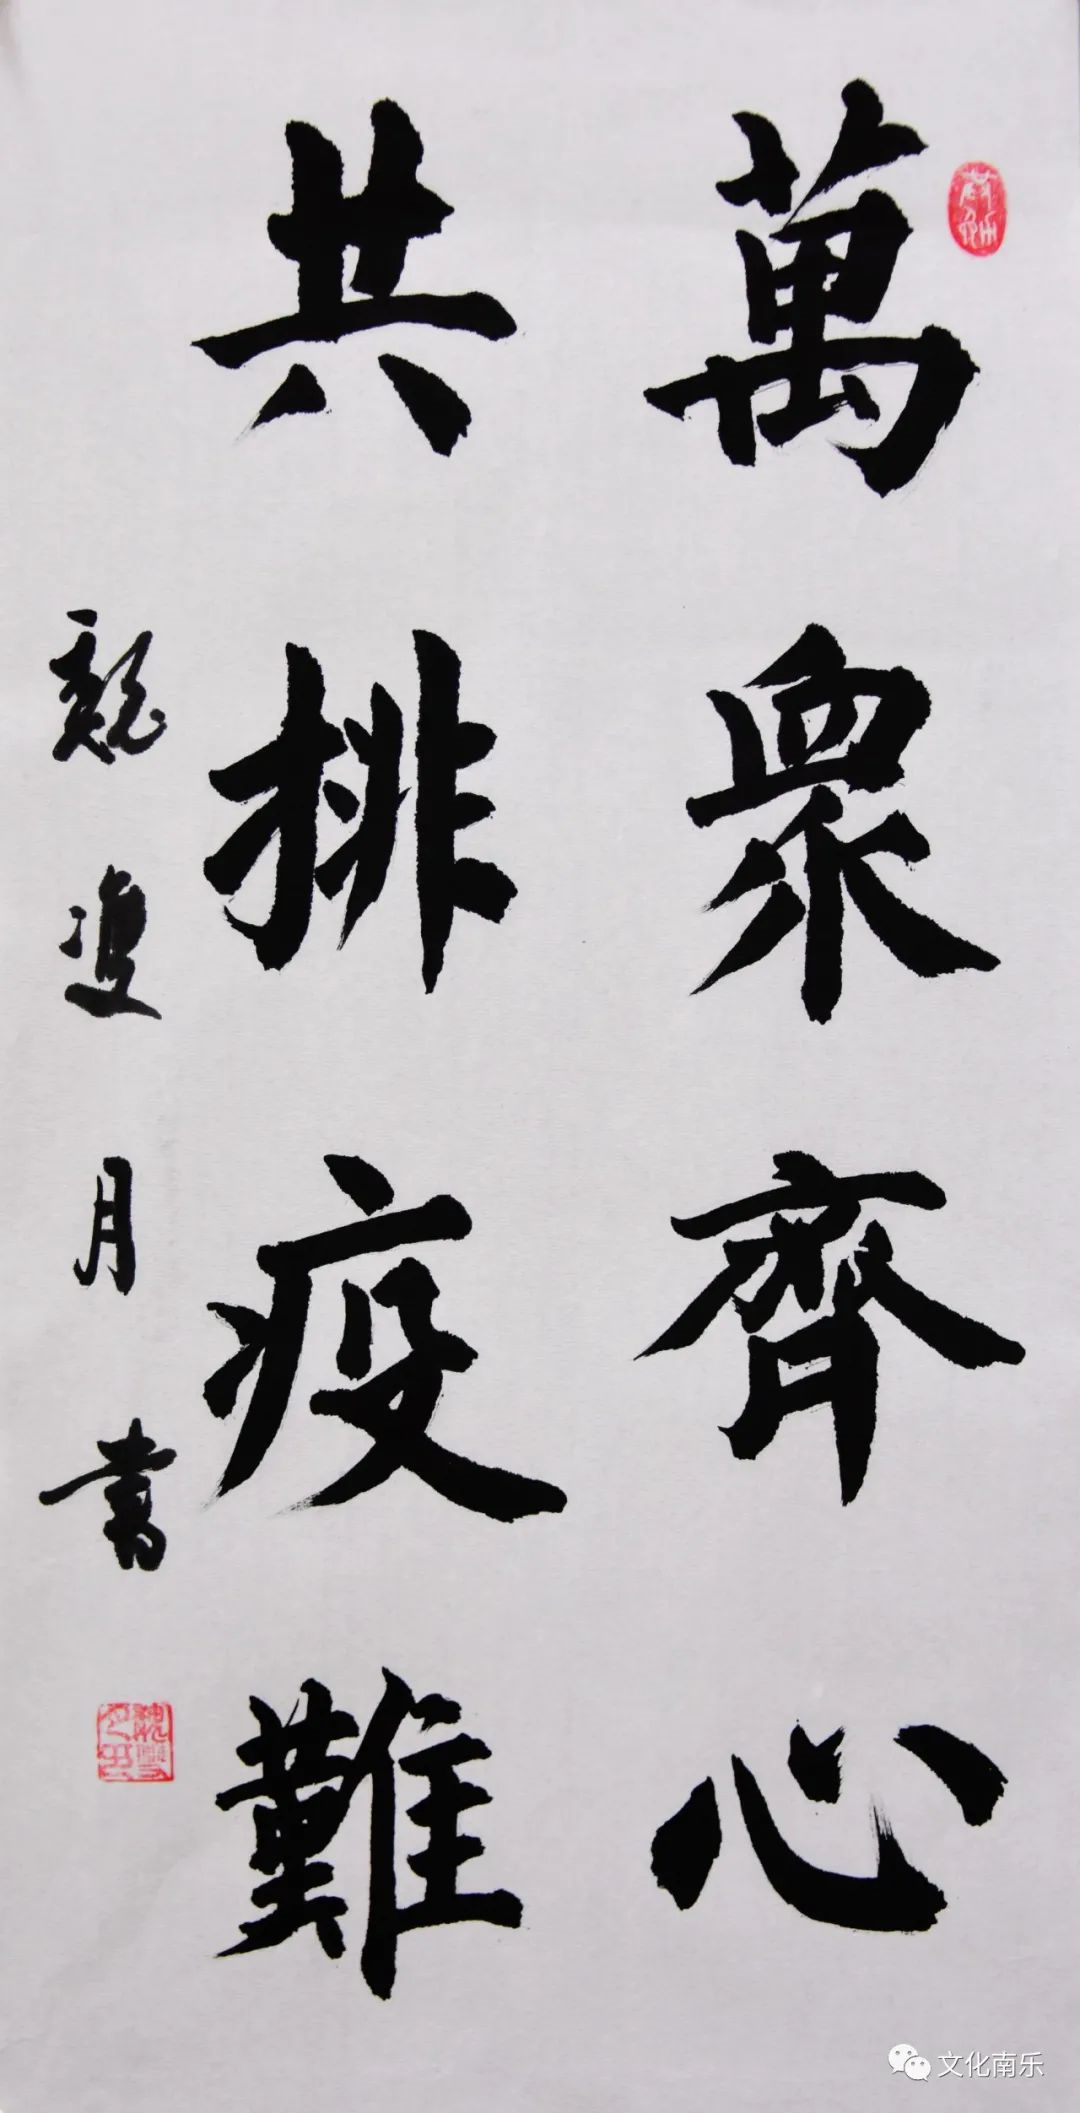 萬衆齊心
共排疫難
魏雙月書
文化南乐